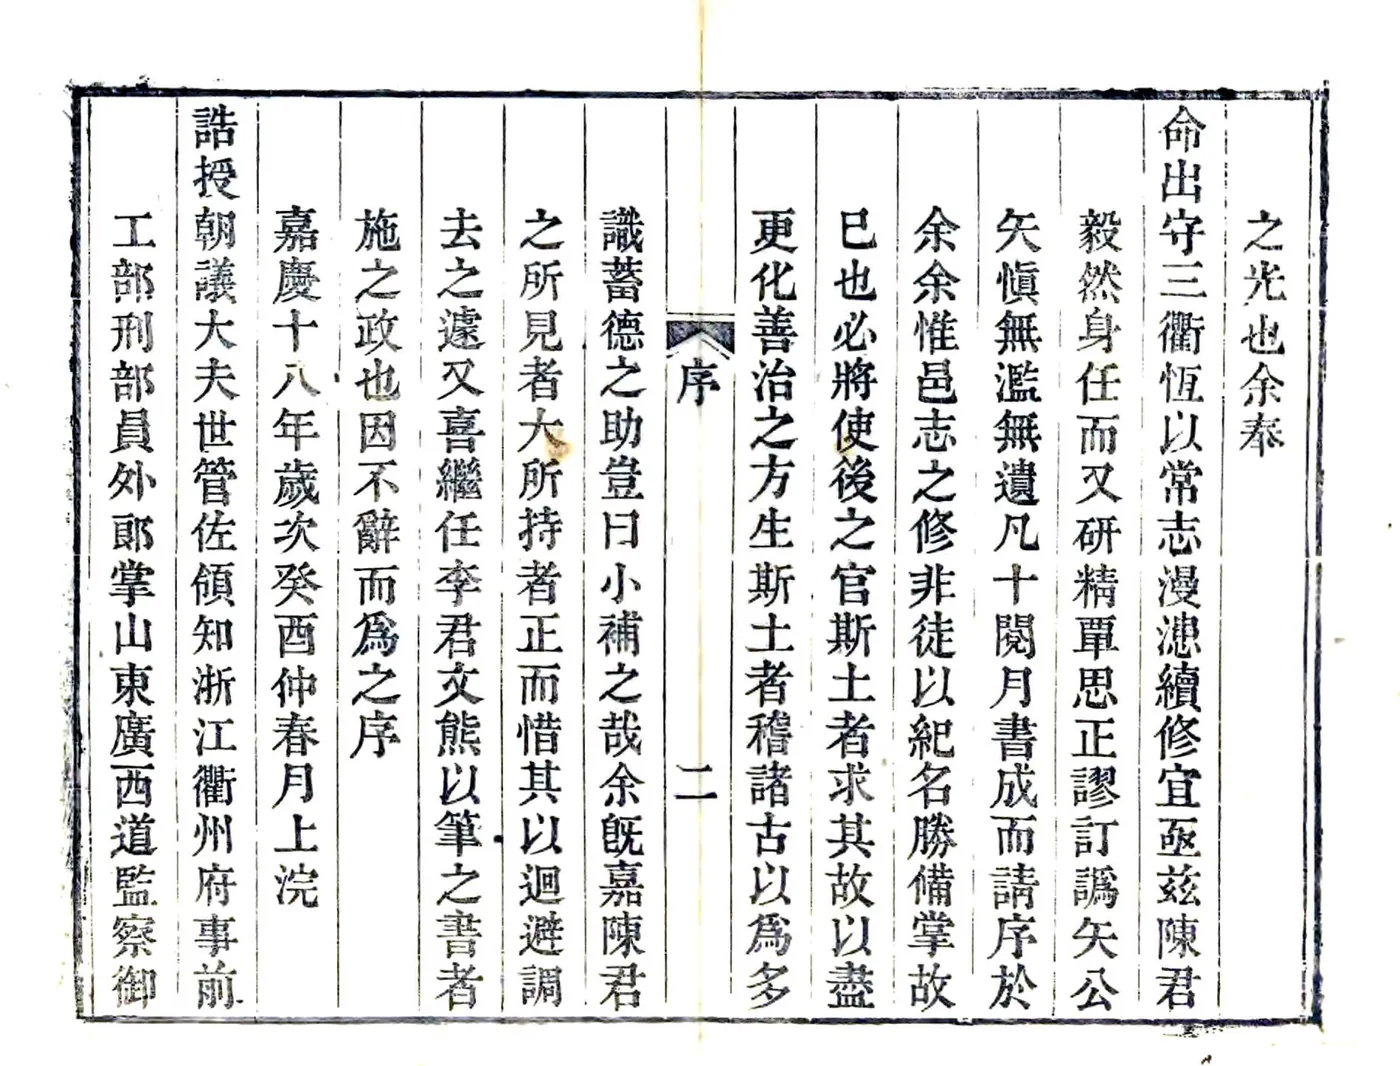 之光也余奉
命出守三衢恆以常志漫漶續修宜亟茲陳君
毅然身任而又研精覃思正謬訂譌矢公
矢愼無濫無遺凡十閱月書成而請序於
余余惟邑志之修非徒以紀名勝備掌故
巳也必將使後之官斯土者求其故以盡
更化善治之方生斯土者稽諸古以爲多
序 二
識蓄德之助豈曰小補之哉余旣嘉陳君
之所見者大所持者正而惜其以迴避調
去之遽又喜繼任李君文熊以筆之書者
施之政也因不辭而爲之序
嘉慶十八年歲次癸酉仲春月上浣
誥授朝議大夫世管佐領知浙江衢州府事前
工部刑部員外郎掌山東廣西道監察御